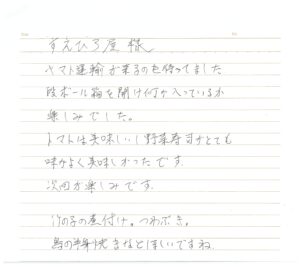 すえひろ屋 様
ヤマト運輸が来るのを待ってました
段ボール箱を開け何が入っているか
楽しみでした。
トマトは美味しいし野菜寿司がとても
味がよく美味しかったです
次回が楽しみです
竹の子の煮付け。つわぶき。
鳥の半身焼きなどほしいですね